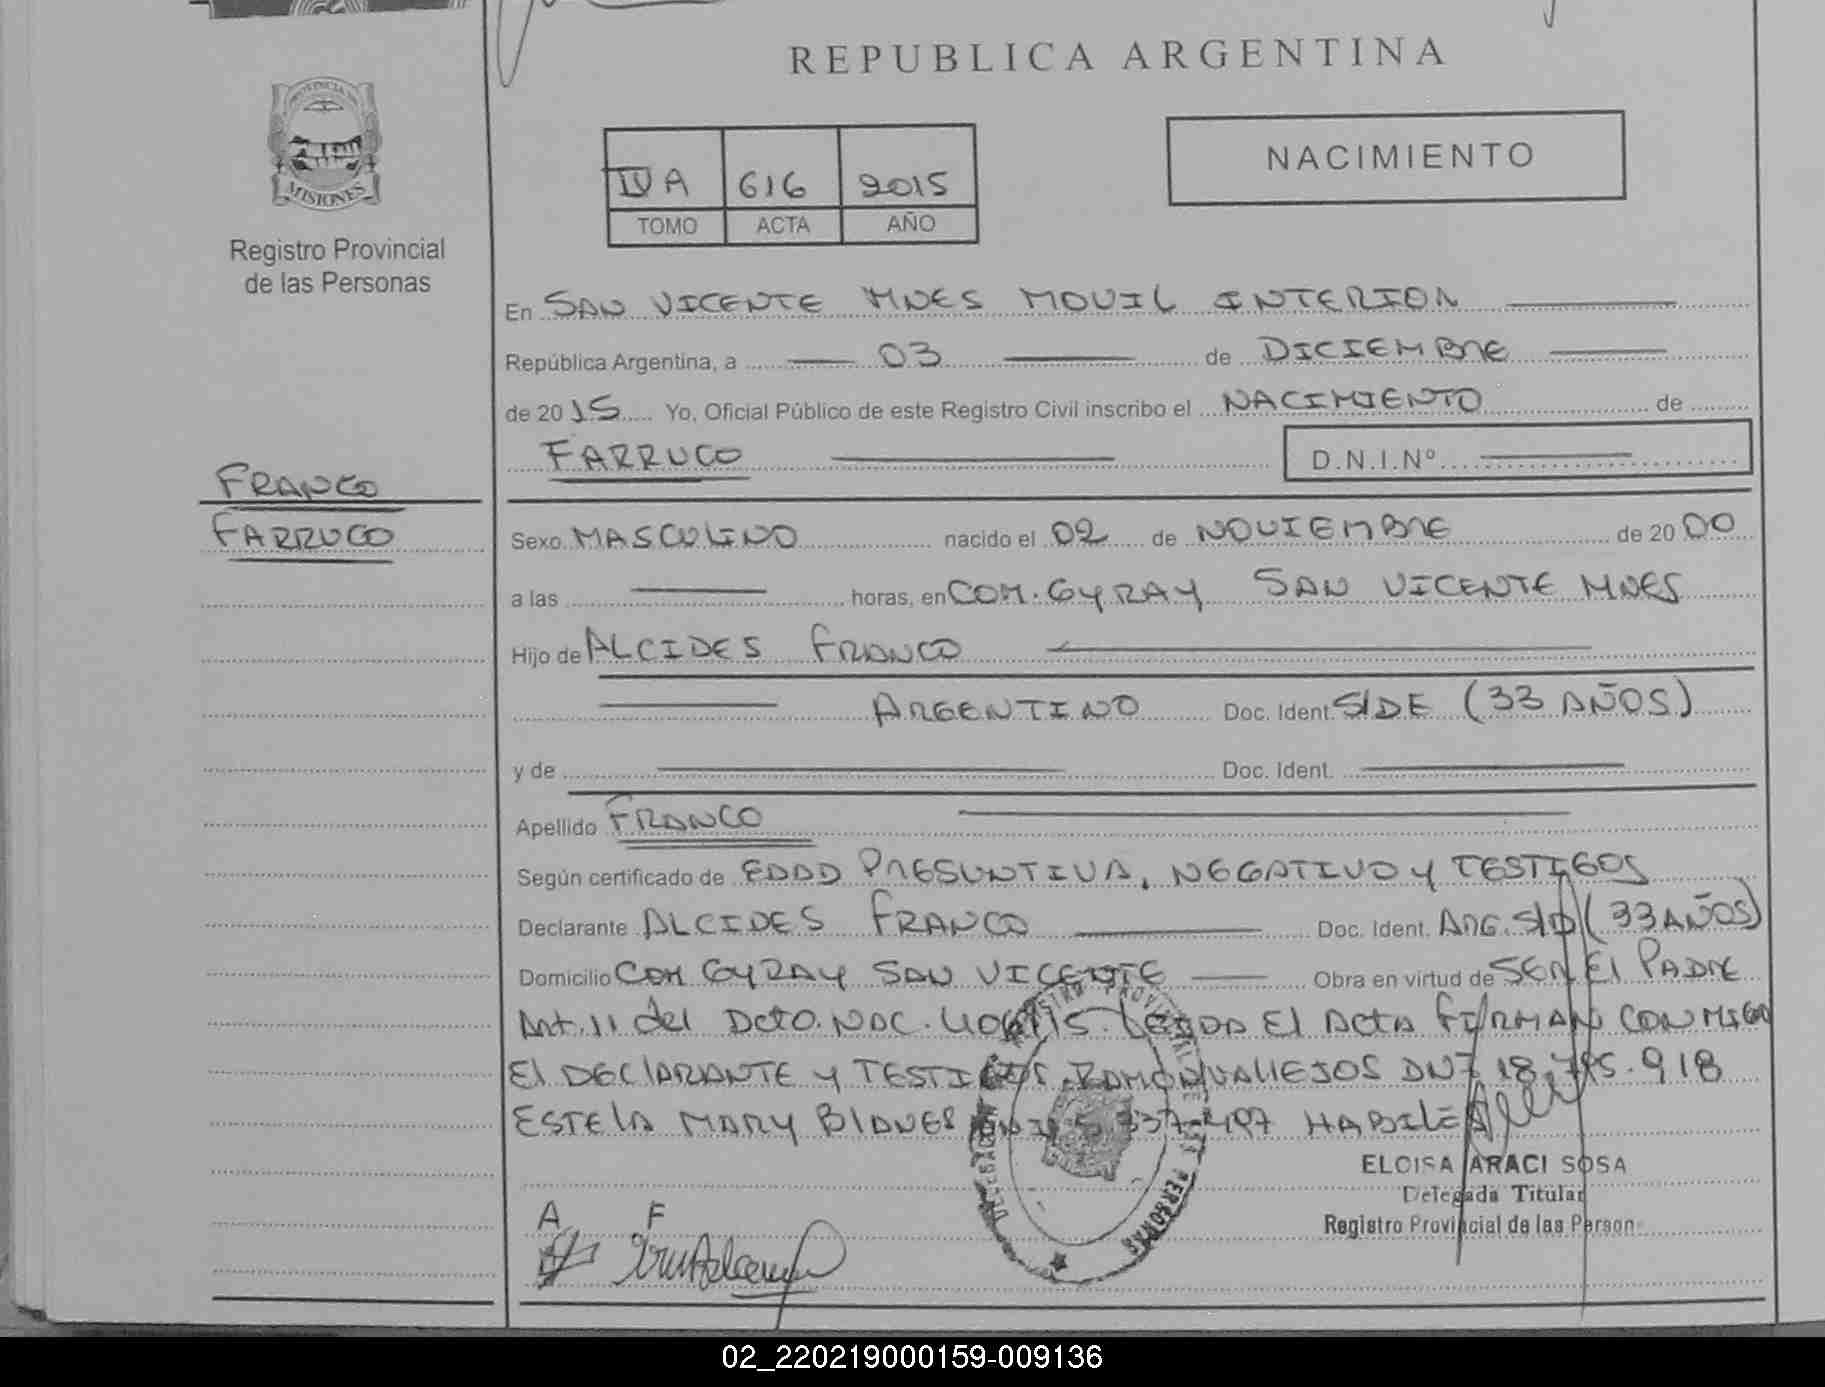 REPUBLICA ARGENTINA
PROVINCIA DE
MISIONES
Registro Provincial
de las Personas
NACIMIENTO
IV A 616 2015
TOMO ACTA AÑO
En SAN VICENTE MNES MOVIL INTERIOR
República Argentina, a 03 de DICIEMBRE
de 2015 Yo, Oficial Público de este Registro Civil inscribo el NACIMIENTO de
FARRUCO D.N.I.Nº
FRANCO
FARRUCO
Sexo MASCULINO nacido el 02 de NOVIEMBRE de 2000
a las horas, en COM. GYRAY SAN VICENTE MNES
Hijo de ALCIDES FRANCO
ARGENTINO Doc. Ident. S/DE (33 AÑOS)
y de Doc. Ident.
Apellido FRANCO
Según certificado de EDAD PRESUNTIVA, NEGATIVO y TESTIGOS
Declarante ALCIDES FRANCO Doc. Ident. ARG. S/D (33 AÑOS)
Domicilio COM GYRAY SAN VICENTE Obra en virtud de SER El PADRE
Art. 11 del Dcto. NAC. LEIDA El ACTA FIRMAN CONMIGO
El DEClARANTE y TESTIGOS RAMON VALLEJOS DNI
ESTElA MARY HABILES
ELOISA ARACI SOSA
Delegada Titular
Registro Provincial de las Person
A F
02_220219000159-009136